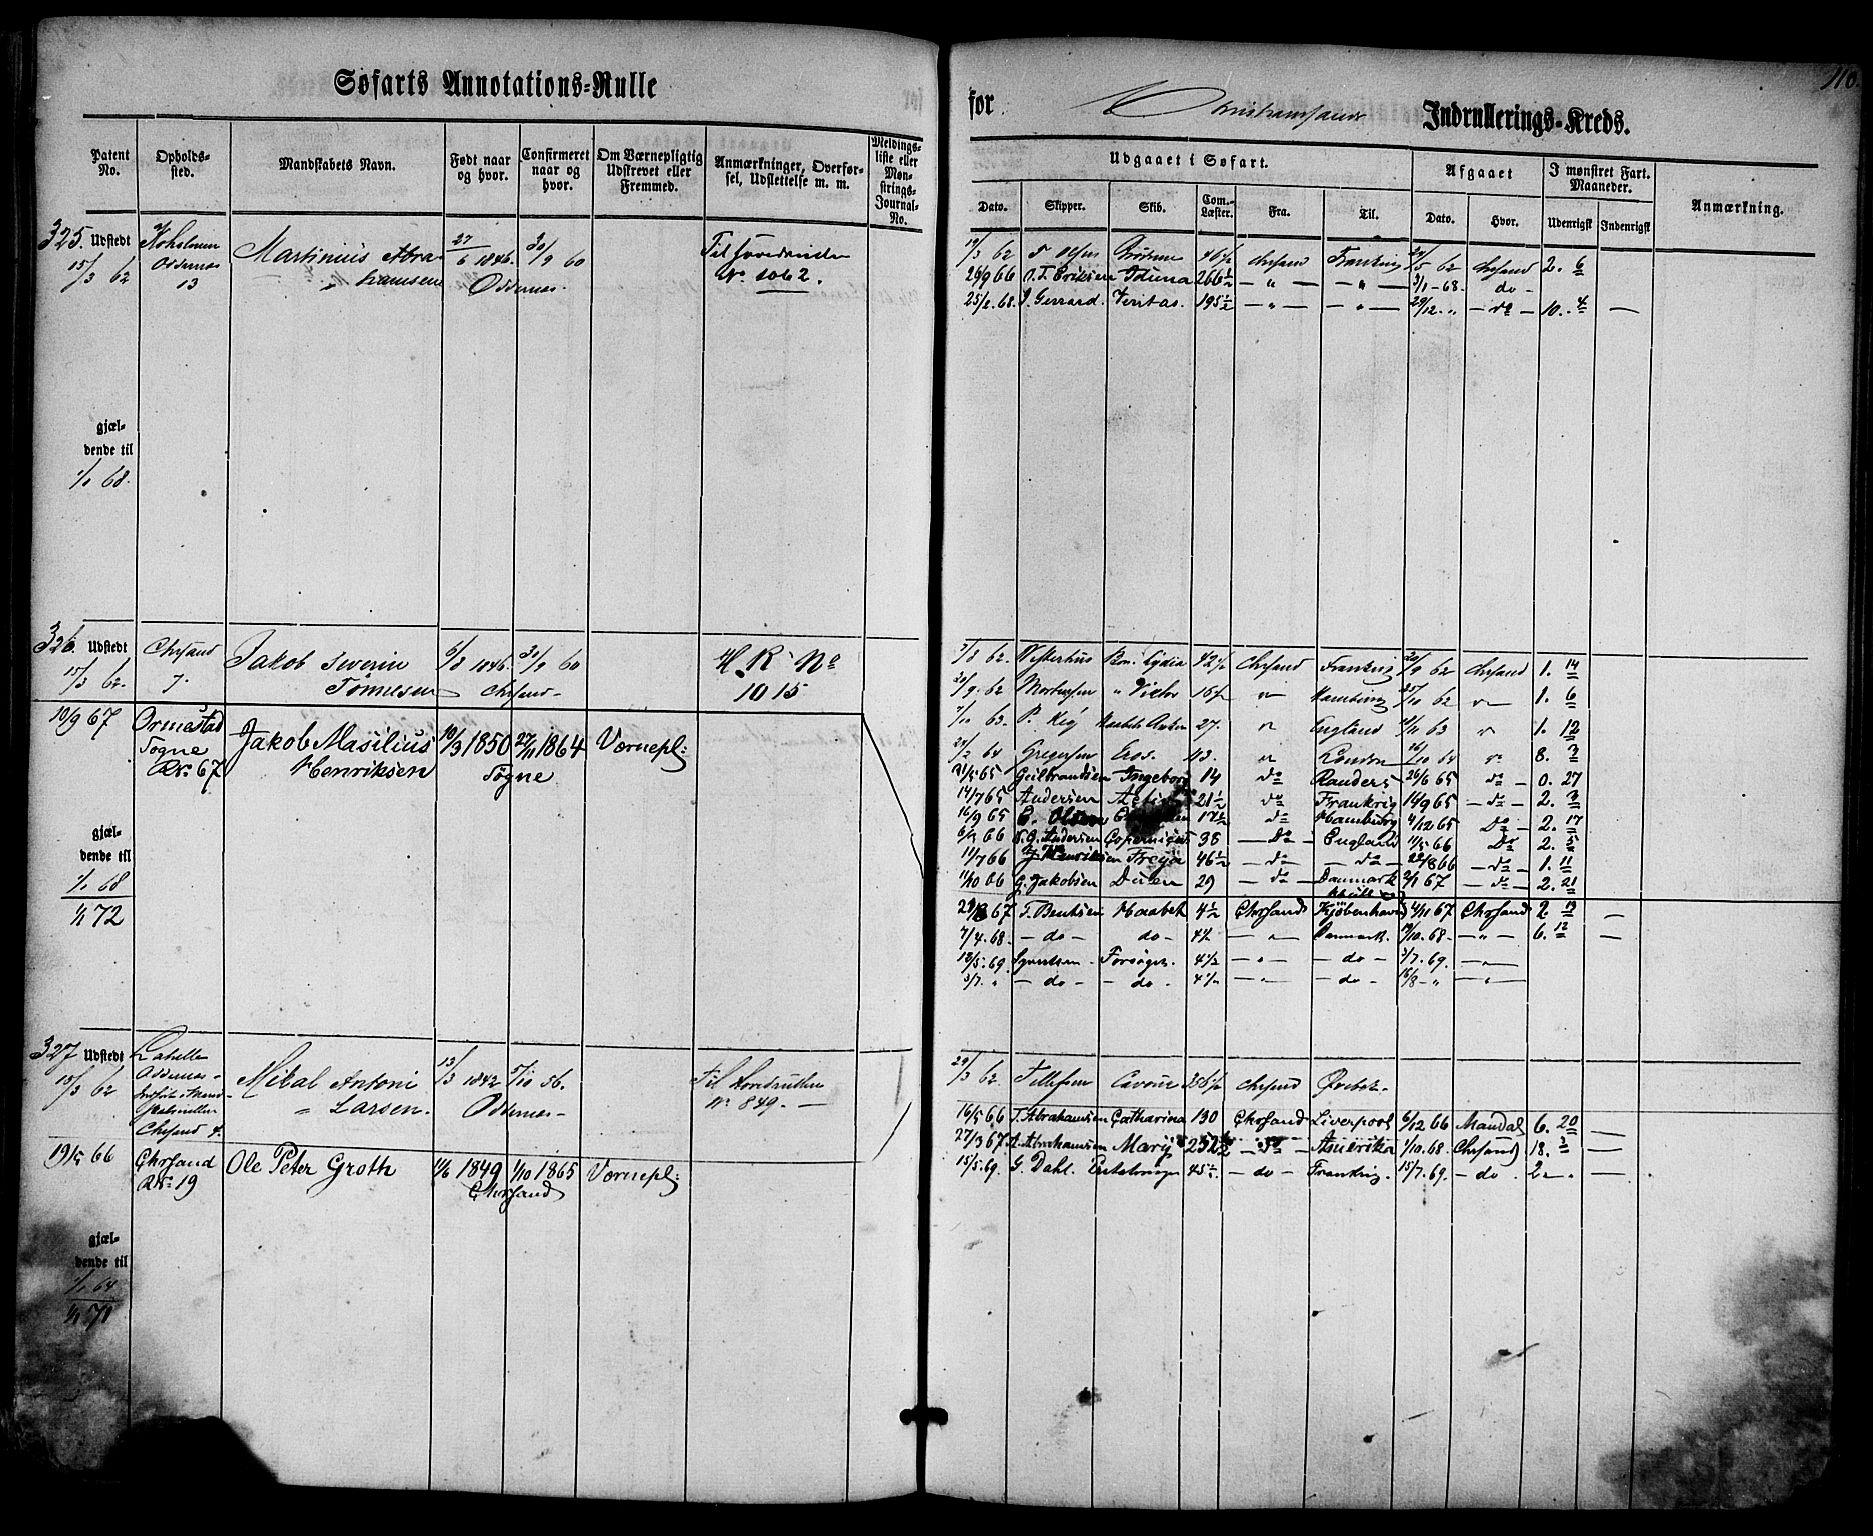 Søfarts Annotations-Rulle
Patent No.
Opholds-sted.
Mandskabets Navn.
Født naar og hvor.
Confirmeret naar og hvor.
Om Værnepligtig Udskrevet eller Fremmed.
Anmærkninger, Overførsel, Udslettelse m. m.
Meldings-liste eller Mønstrings-Journal-No.
325. Udstedt 15/3 62
Oddernæs 13
Martinius Abrahamsen
27/6 1846. Oddernæs.
30/9 60
Til Hovedrullen
No 1062.
gjældende til
1/1 68.
326. Udstedt 15/3 62.
Chrsand 7.
Jakob Severin Tønnesen
6/8 1846. Chrsand
30/9 60
H. R. No
1015
10/9 67
Ormestad
Søgne
No 67
Jakob Masilius Henriksen
10/3 1850
27/11 1864
Søgne
Værnepl:
gjældende til
1/1 68
1/1 72
327 Udstedt 15/3 62
Oddernæs
Chrsand 4.
Mikal Antoni Larsen.
13/3 1842
5/10 56.
Oddernæs
Til Hovedrullen
No 849.
19/5 66
Chrsand
No 19
Ole Peter Groth
4/6 1849
1/10 1865
Chrsand
Værnepl:
gjældende til
1/1 64
1/1 71
110.
for Christianssands Indrullerings-Kreds.
Udgaaet i Søfart.
Afgaaet
I mønstret Fart. Maaneder.
Anmærkning.
Dato.
Skipper.
Skib.
Com.-Læster.
Fra.
Til.
Dato.
Hvor.
Udenrigsk
Indenrigsk
19/3 62 46 1/2 Chrsand Frankrig 24/5 62 Chrsand 2. 6
26/9 66 O. T. Eriksen Iduna 266 1/2 — " — — " — 3/1 - 68. do -
25/2. 68. J. Gerrard. Veritas. 195 1/2 — " — — " — 29/12. " — do — 10. 4 —
7/8 62. Lydia 42 1/2 Chrsand Frankrig 20/9 62 Chrsand 1. 14
20/9. 62 " Victor 16 1/2 " Hamburg 25/10 62 " 1. 6
7/10 63. 27. " England 10/11 63 " 1. 12
24/2 64 Gregersen Eros. 43. " London 16/10 64 " 8. 2
21/5 65 Geilbrandsen Ingeborg 14 do Randers 26/6 65 do — 0. 27
14/7 65 Andersen 21 1/2 do Frankrig 14/9 65 — do — 2. 3
16/9 65 E. Olsen 17 1/2 do Hamburg 4/12 65 Do — 2. 17
Andersen Copernicus 38 — Do — England 11/5 66 Do 2. 5
11/7 66 J. Henriksen Freya 46 1/2 — do — — do — 22/8 66 — do — 1. 11
11/10 66 G. Jakobsen Duen 29 — do — Danmark 2/1 67 — do — 2. 21
67 T. Bentsen Haabet 4 1/2 Chrsand Kjöbenhavn 4/11 67 Chrsand 2. 19 —
7/4. 68. — do — do — 4 1/2 — " — Danmark. 19/10. 68. — " — 6. 12 —
18/5. 69. Syvertsen Forsøget. 4 1/2 — " — — do — 3/7. 69. — " —
3/7. " — do — — do — 4 1/2 — " — — do — 16/8 - " — " —
29/3 62. Tellefsen Chrsand
16/5 66 T. Abrahamsen Catharina 130 Chrsand Liverpool 6/12 66 Mandal 6. 20 —
27/3 67. A. Abrahamsen Mary 252 1/2 — do — Amerika 1/10. 68. Chrsand 18. 3 —
15/5. 69. G. Dahl. 45 1/2. — do — Frankrig. 15/7. 69. — do 2 — . —